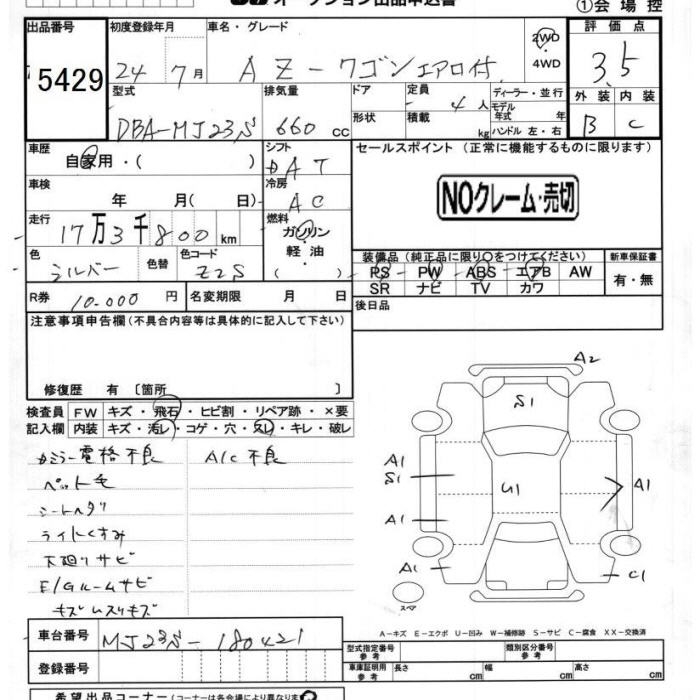 オークション出品申込書
①会場控
出品番号 初度登録年月 車名・グレード 2WD 評価点
5429 24年7月 AZ-ワゴンエアロ付 4WD 3.5
型式 排気量 ドア 定員 4人 ディーラー・並行 外装 内装
モデル年式 年
DBA-MJ23S 660cc 形状 積載 kg ハンドル 左・右 B C
車歴 シフト セールスポイント (正常に機能するものに限ります)
自家用・( ) DAT
車検 冷房
年 月( 日) AC
NOクレーム・売切
走行 燃料
17万3千800km ガソリン
軽・油
色 色替 色コード 装備品(純正品に限り○をつけてください) 新車保証書
シルバー Z2S PS PW ABS エアB AW 有・無
SR ナビ TV カワ
R券 10.000円 名変期限 月 日 後日品
注意事項申告欄(不具合内容等は具体的に記入して下さい)
修復歴 有 〔箇所 〕
検査員 FW キズ・飛石・ヒビ割・リペア跡・×要
記入欄 内装 キズ・汚レ・コゲ・穴・スレ・キレ・破レ
カミラー電格不良 A/C不良
ペット毛
シートヘタリ
ライトくすみ
下廻りサビ
E/Gルームサビ
キズ レスリキズ
A2
S1
A1
S1
U1
A1
A1
A1
C1
スペア
A-キズ E-エクボ U-凹み W-補修跡 S-サビ C-腐食 XX-交換済
車台番号 MJ23S-180421
型式指定番号 参考 類別区分番号 参考
登録番号 車庫証明用 参考 長さ cm 幅 cm 高さ cm
希望出品コーナー(コーナーは各会場により異なりま